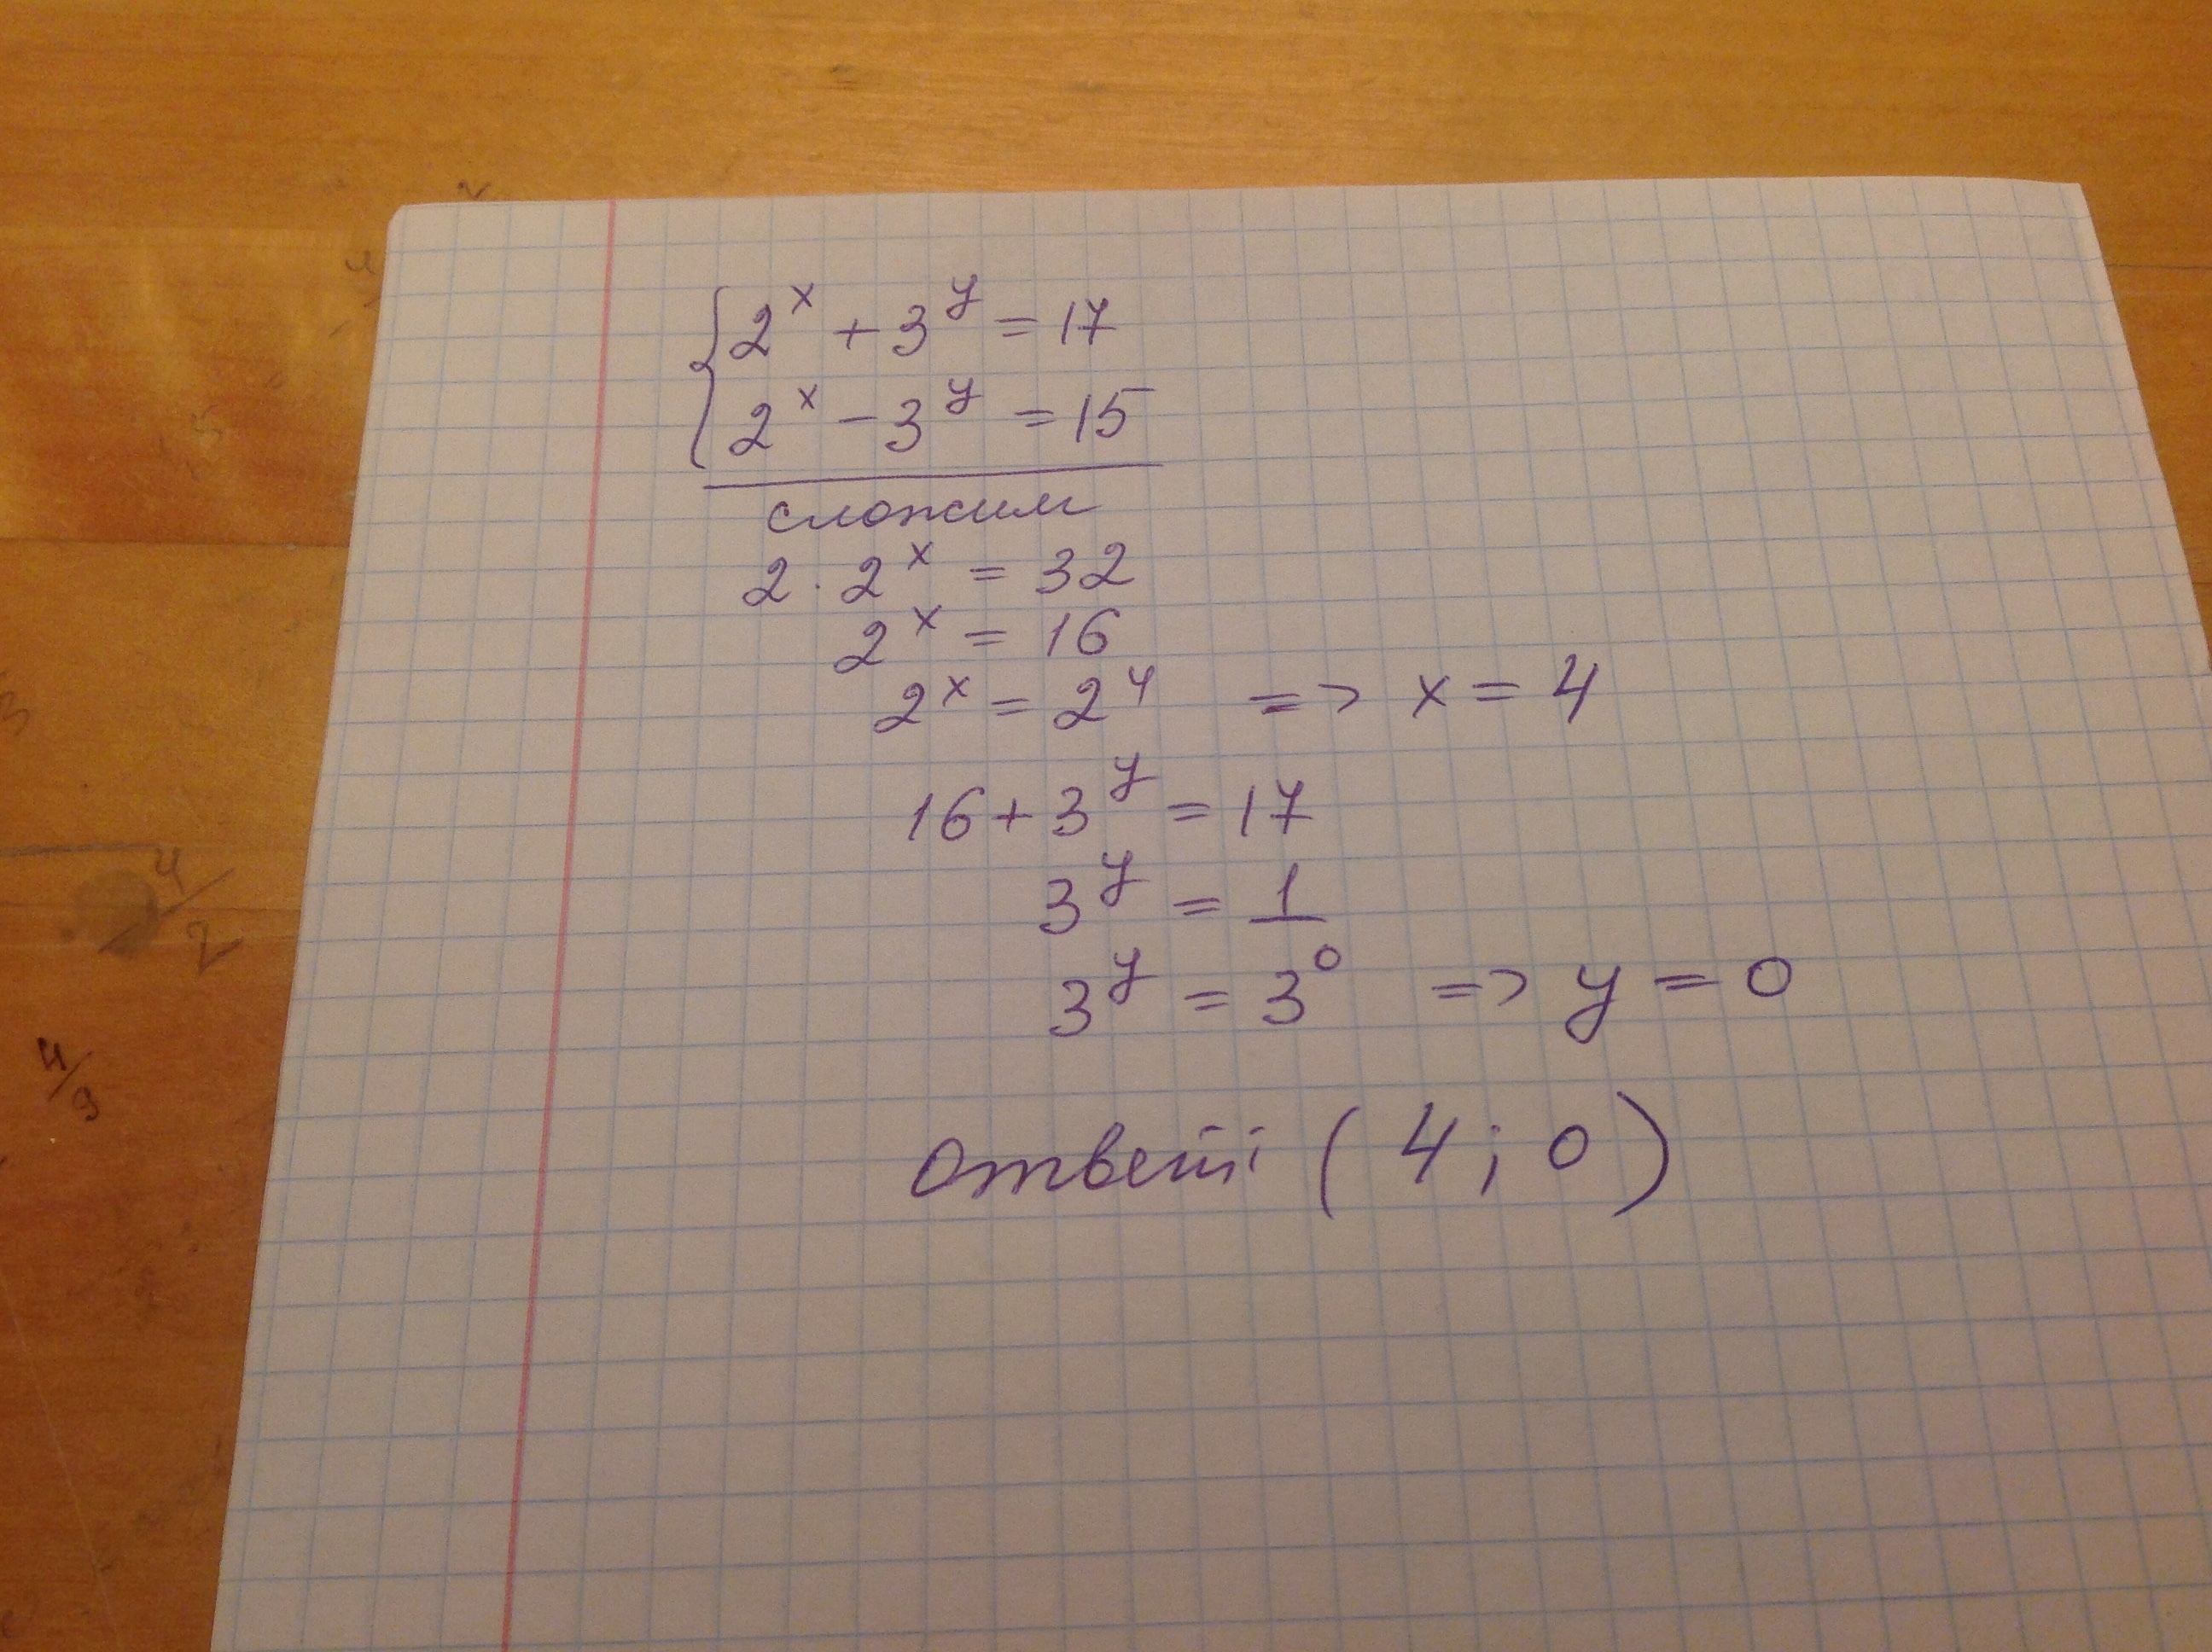 2^x + 3^y = 17
2^x - 3^y = 15
сложим
2 · 2^x = 32
2^x = 16
2^x = 2^4 => x = 4
16 + 3^y = 17
3^y = 1
3^y = 3^0 => y = 0
Ответ: (4; 0)
4/2
4/9